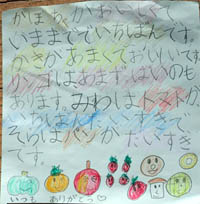 かぼちゃがおいしくて
いままででいちばんです。
かきがあまくておいしいです
りんごはあまずっぱいのも
あります。みわはトマトが
いちばんだいすきで
そらはパンがだいすき
です。
いつも ありがとう♡